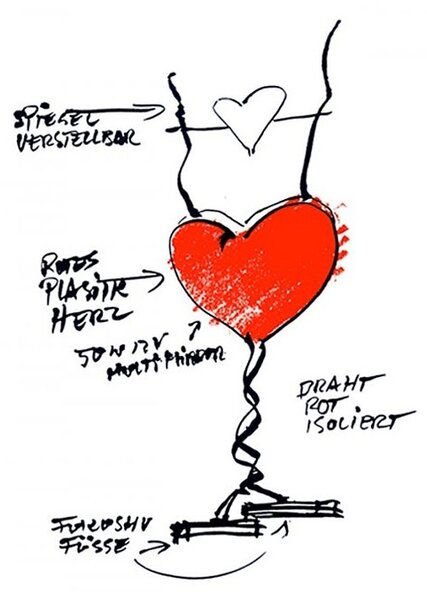 SPIEGEL
VERSTELLBAR
ROTES
PLASTIK
HERZ
50 W 12V
DRAHT
ROT
ISOLIERT
FÜSSE